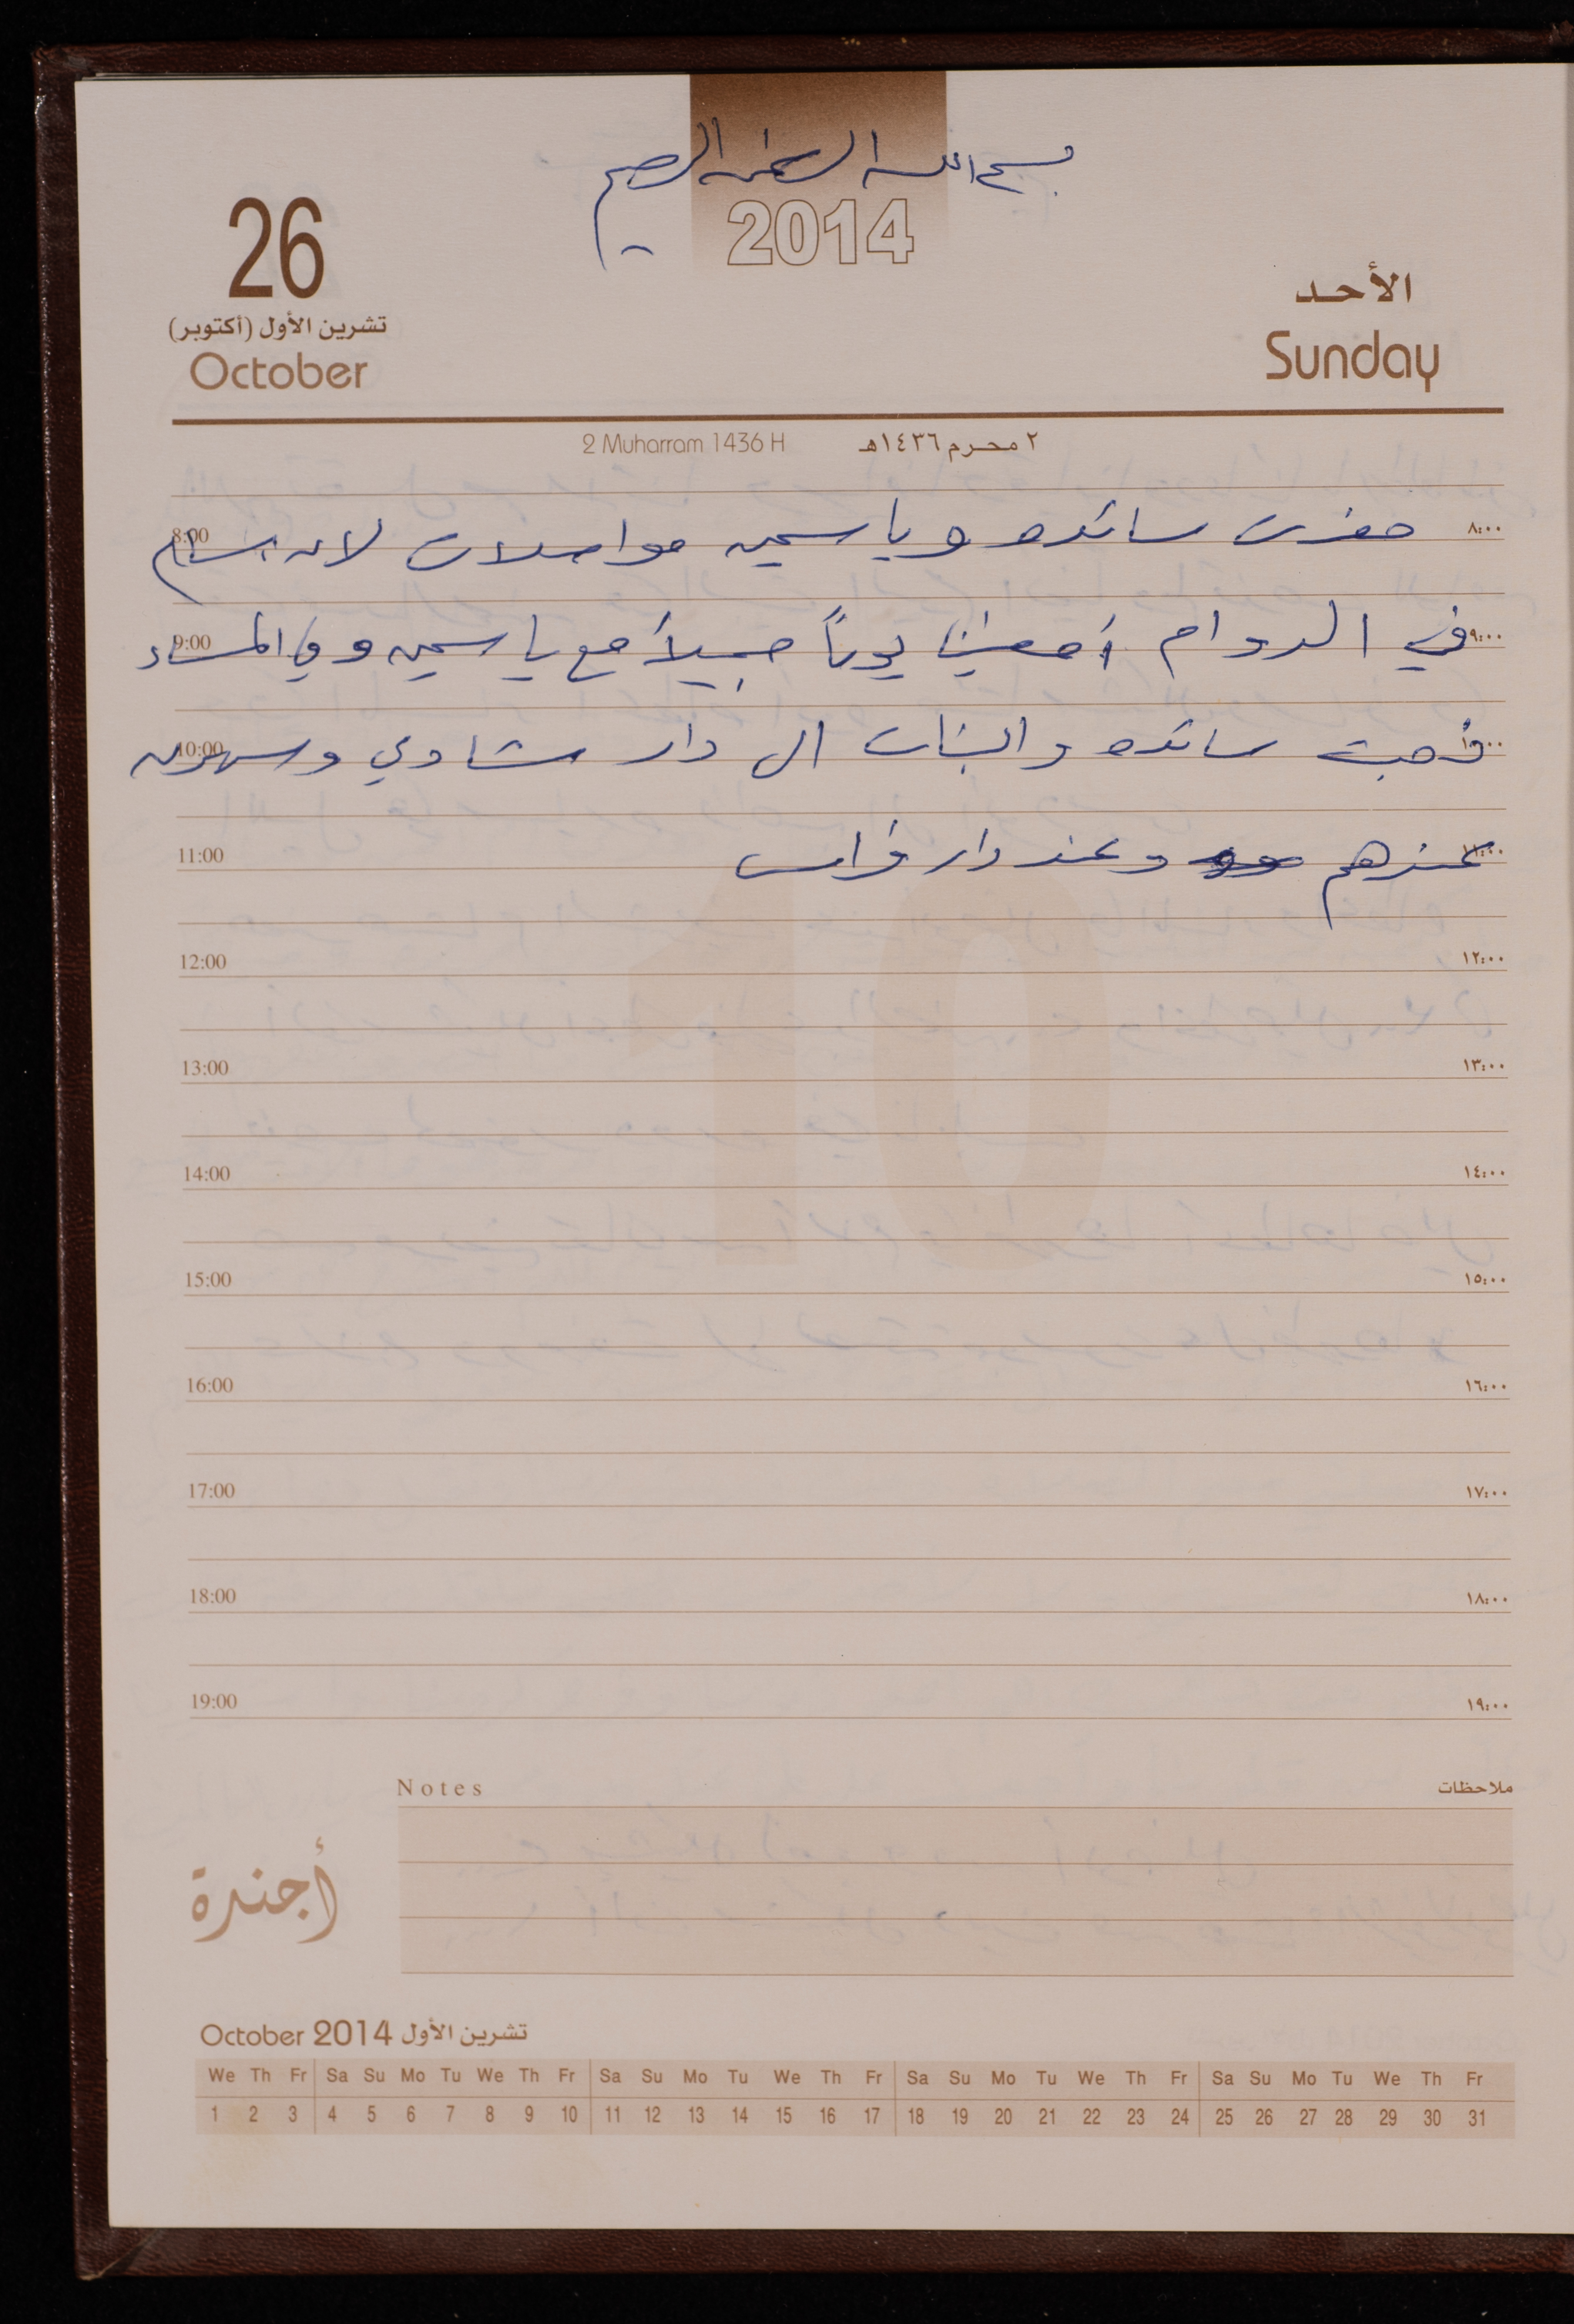 بسم الله الرحمن الرحيم
2014
26
تشرين الأول (أكتوبر)
October
الأحد
Sunday
2 Muharram 1436 H ٢ محرم ١٤٣٦هـ
8:00 حضرت سائده وياسمين مواصلات لان بسام ٨:٠٠
9:00 في الدوام أمضينا يوماً جميلاً مع ياسمين وفي المساء ٩:٠٠
10:00 ذهبت سائده والبنات الى دار شاوي وسهرن ١٠:٠٠
11:00 عندهم وعند دار فراس ١١:٠٠
12:00 ١٢:٠٠
13:00 ١٣:٠٠
14:00 ١٤:٠٠
15:00 ١٥:٠٠
16:00 ١٦:٠٠
17:00 ١٧:٠٠
18:00 ١٨:٠٠
19:00 ١٩:٠٠
Notes ملاحظات
أجندة
October 2014 تشرين الأول
We Th Fr Sa Su Mo Tu We Th Fr Sa Su Mo Tu We Th Fr Sa Su Mo Tu We Th Fr Sa Su Mo Tu We Th Fr
1 2 3 4 5 6 7 8 9 10 11 12 13 14 15 16 17 18 19 20 21 22 23 24 25 26 27 28 29 30 31